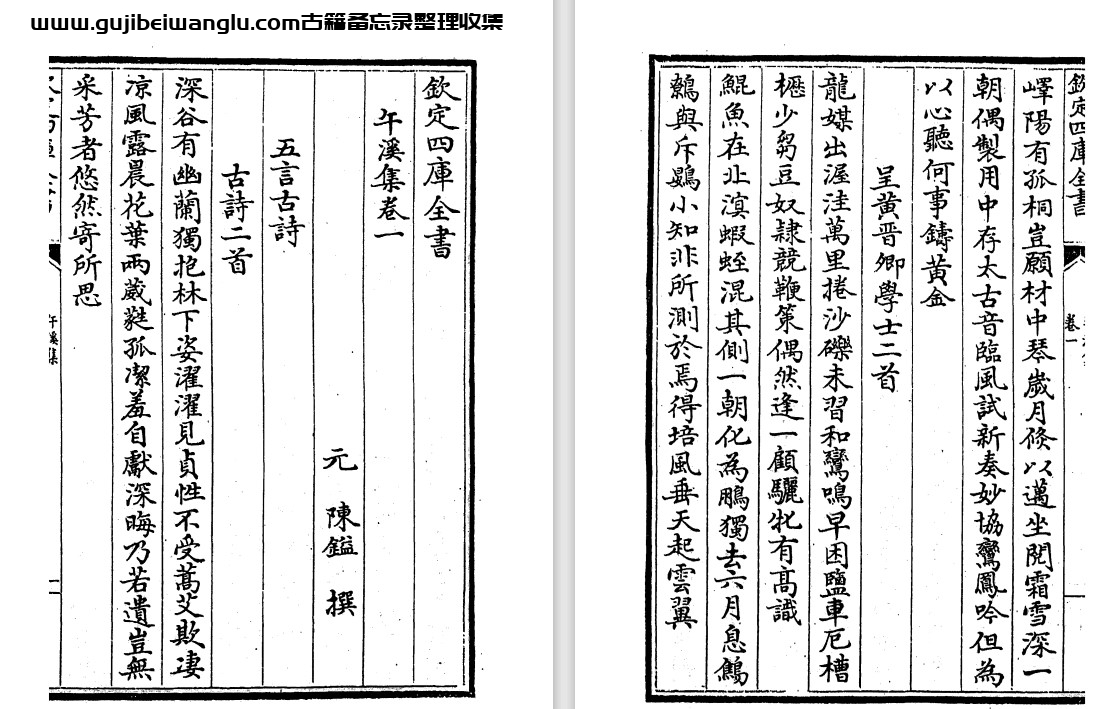 www.gujibeiwanglu.com古籍备忘录整理收集
欽定四庫全書
午溪集卷一
元 陳鎰 撰
五言古詩
古詩二首
深谷有幽蘭獨抱林下姿濯濯見貞性不受蒿艾欺凄
涼風露晨花葉兩葳蕤孤潔羞自獻深晦乃若遺豈無
采芳者悠然寄所思
午溪集
欽定四庫全書
卷一
嶧陽有孤桐豈願材中琴歲月倐以邁坐閱霜雪深一
朝偶製用中存太古音臨風試新奏妙協鸞鳳吟但為
以心聽何事鑄黃金
呈黃晋卿學士二首
龍媒出渥洼萬里捲沙礫未習和鸞鳴早困鹽車厄槽
櫪少芻豆奴隸競鞭策偶然逢一顧驪牝有髙識
鯤魚在北溟蝦蛭混其側一朝化為鵬獨去六月息鷦
鷯與斥鷃小知非所測於焉得培風垂天起雲翼